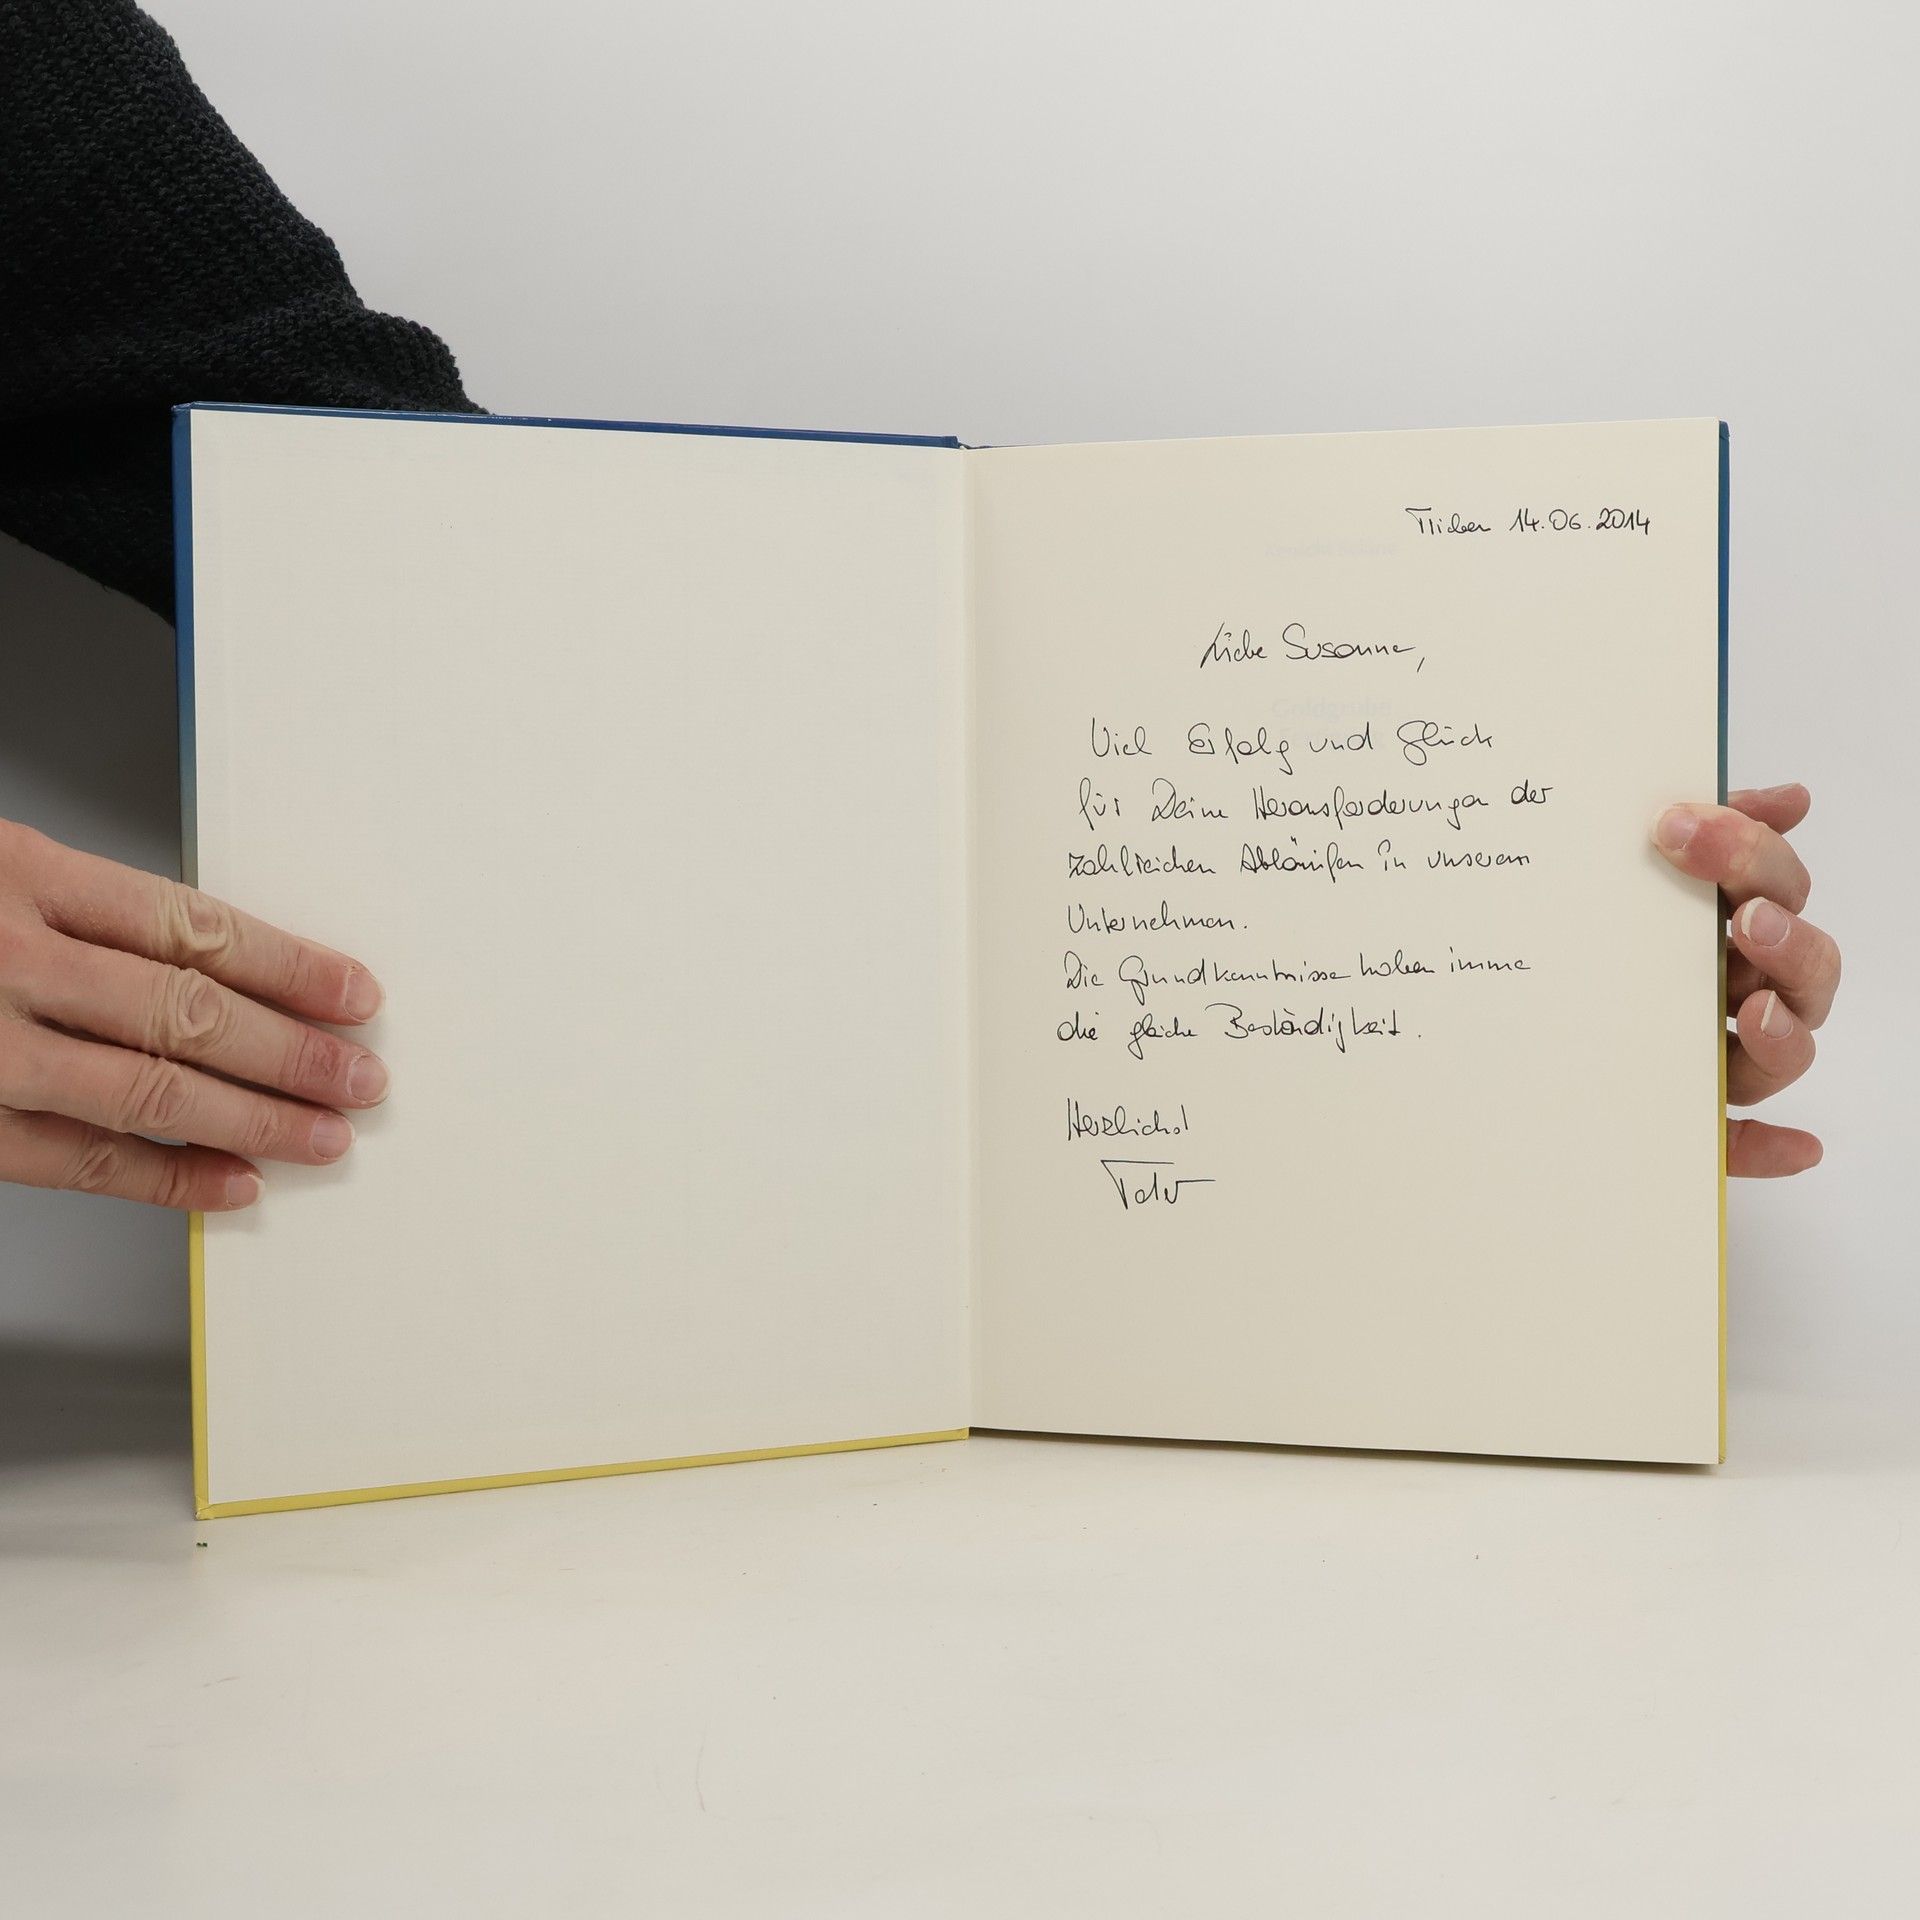 14.06.2014
Liebe Susanne,
Viel Erfolg und Glück
für Deine Herausforderungen der
zahlreichen Abläufen in unserem
Unternehmen.
Die Grundkenntnisse haben immer
die gleiche Beständigkeit.
Herzlichst